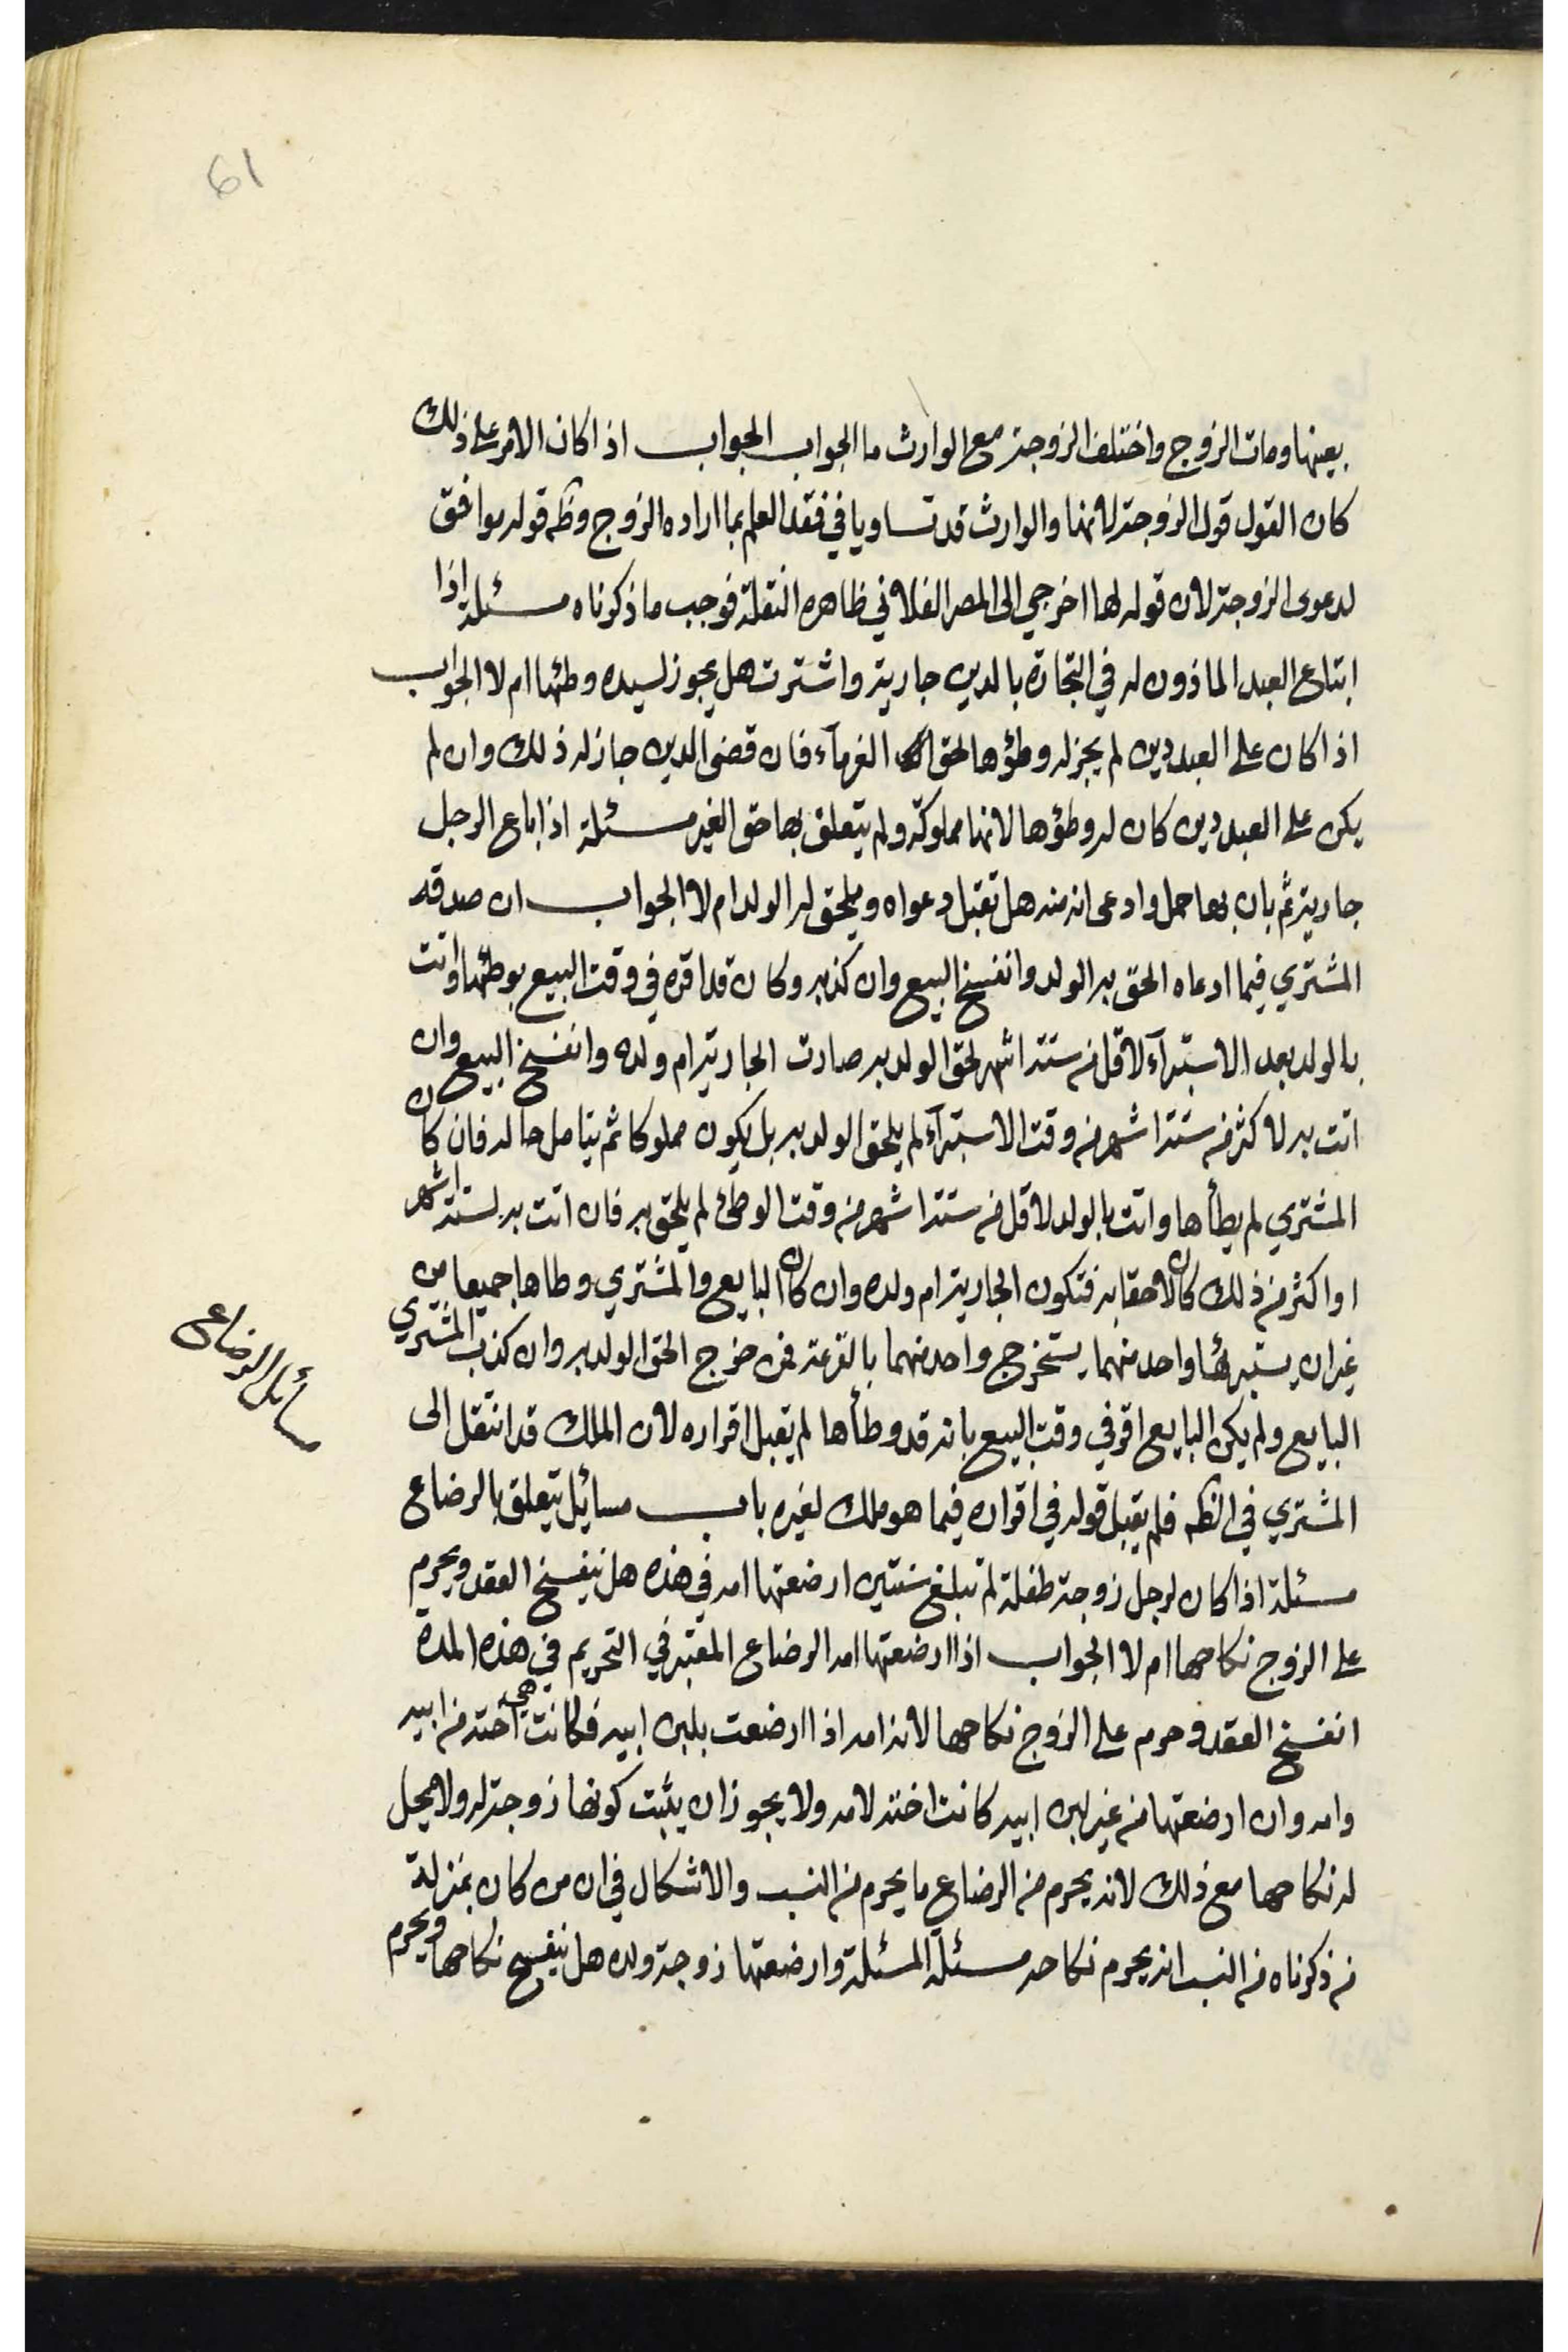 61
بعينها ومات الزوج واختلف الزوجة مع الوارث ما الجواب الجواب اذا كان الامر على ذلك
كان القول قول الزوجة لانها والوارث قد تساويا في فقد العلم بما اراده الزوج وظه قوله موافق
لدعوى الزوجة لان قوله لها اخرجي الى المصر الفلاني ظاهره النقلة فوجب ما ذكرناه مسئلة اذا
ابتاع العبد الماذون له في التجارة بالدين جارية واشترت هل يجوز لسيده وطئها ام لا الجواب
اذا كان على العبد دين لم يجز له وطؤها لحق الغرمآء فان قضى الدين جاز له ذلك وان لم
يكن على العبد دين كان له وطؤها لانها مملوكته ولم يتعلق بها حق الغير مسئلة اذا باع الرجل
جارية ثم بان بها حمل وادعى انه منه هل تقبل دعواه ويلحق له الولد ام لا الجواب ان صدقه
المشتري فيما ادعاه الحق به الولد وانفسخ البيع وان كذبه وكان قد اقره في وقت البيع بوطئها واتت
بالولد بعد الاستبرآء لاقل من ستة اشهر لحق الولد به صارت الجارية ام ولده وانفسخ البيع وان
اتت به لاكثر من ستة اشهر من وقت الاستبرآء لم يلحق الولد به بل يكون مملوكا ثم يتامل حاله فان كان
المشتري لم يطأها واتت بالولد لاقل من ستة اشهر من وقت الوطئ لم يلحق به فان اتت به لستة اشهر
او اكثر من ذلك كان لاحقا به فتكون الجارية ام ولده وان كان البايع والمشتري وطاها جميعا من
غير ان يستبرئها واحد منهما يستخرج واحد منهما بالقرعة فمن خرج الحق الولد به وان كذب المشتري
البايع ولم يكن البايع اقر في وقت البيع بانه قد وطأها لم يقبل اقراره لان الملك قد انتقل الى
المشتري في الظه فلم يقبل قوله في اقراره فيما هو ملك لغيره باب مسائيل يتعلق بالرضاع
مسئلة اذا كان لرجل زوجة طفلة لم تبلغ سنتين ارضعتها امه في هذه هل ينفسخ العقد ويحرم
على الزوج نكاحها ام لا الجواب اذا ارضعتها امه الرضاع المعتبر في التحريم في هذه المدة
انفسخ العقد وحرم على الزوج نكاحها لانه امه اذا ارضعت بلبن ابيه فكانت هي اخته من ابيه
وامه وان ارضعتها من غير لبن ابيه كانت اخته لامه ولا يجوز ان يثبت كونها زوجة له ولا يحل
له نكاحها مع ذلك لانه يحرم من الرضاع ما يحرم من النسب والاشكال في ان من كان بمنزلة
من ذكرناه من النسب انه يحرم نكاحه مسئلة المسئلة وارضعتها زوجة ولده هل ينفسخ نكاحها ويحرم
مسأيل الرضاع